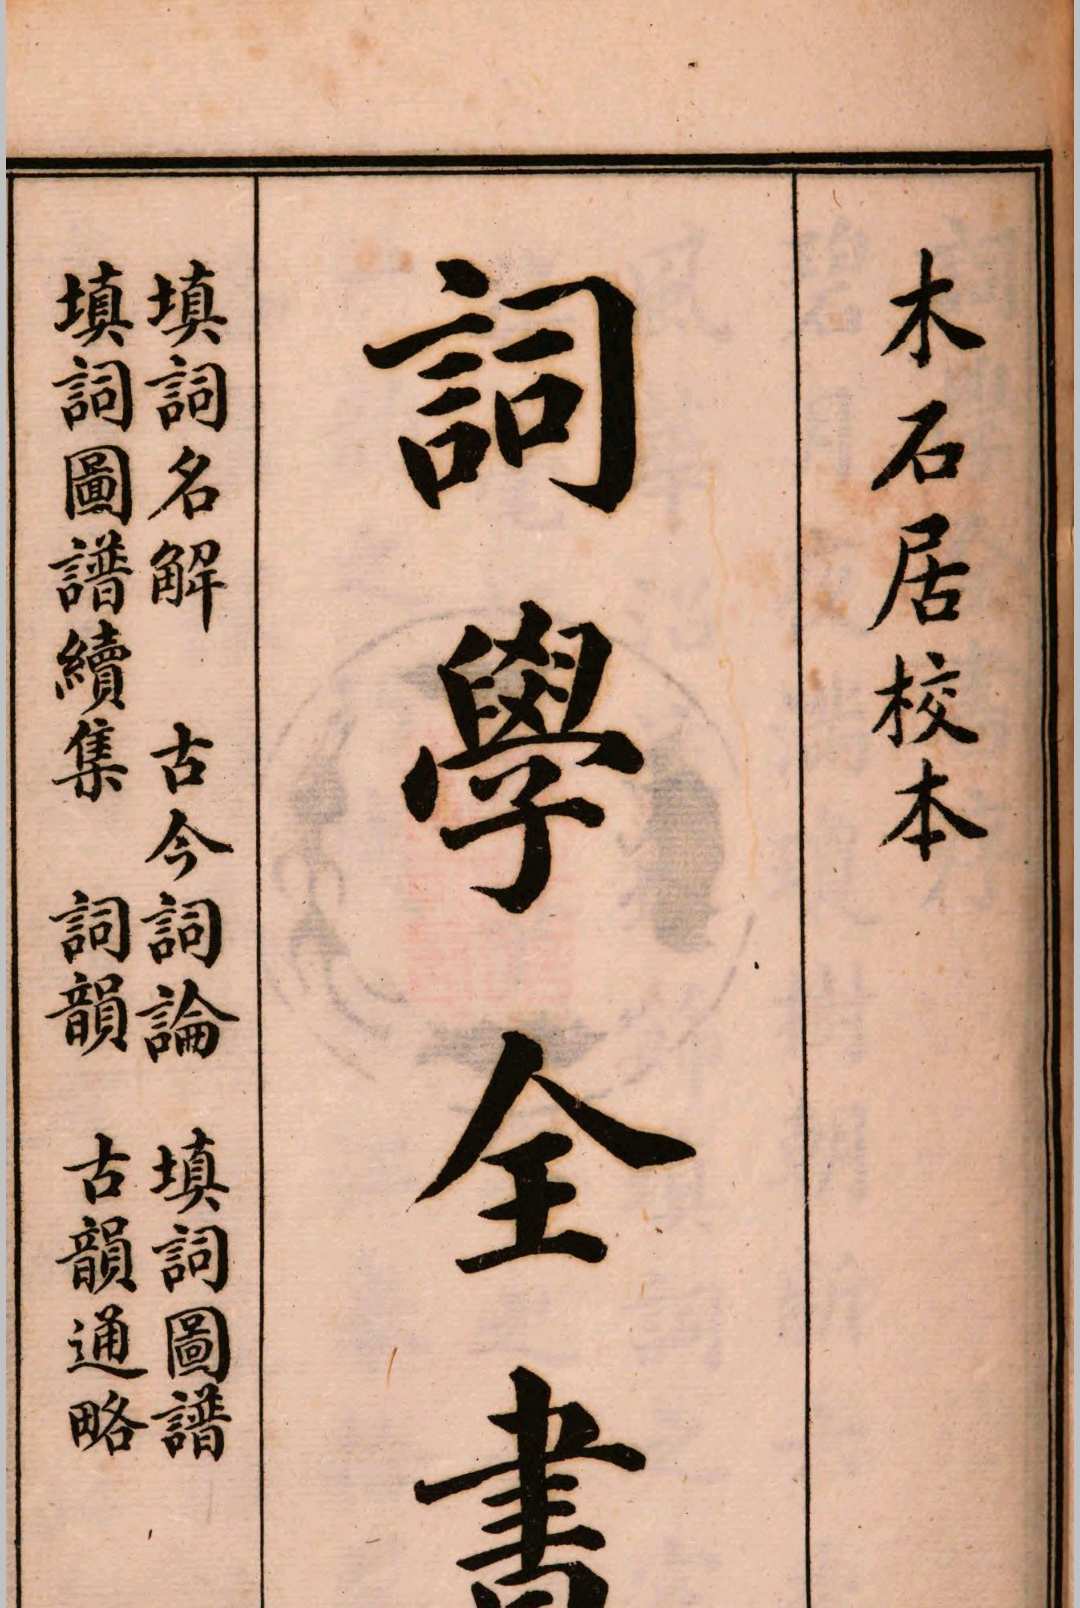 木石居校本
詞學全書
填詞名解 古今詞論 填詞圖譜
填詞圖譜續集 詞韻 古韻通略